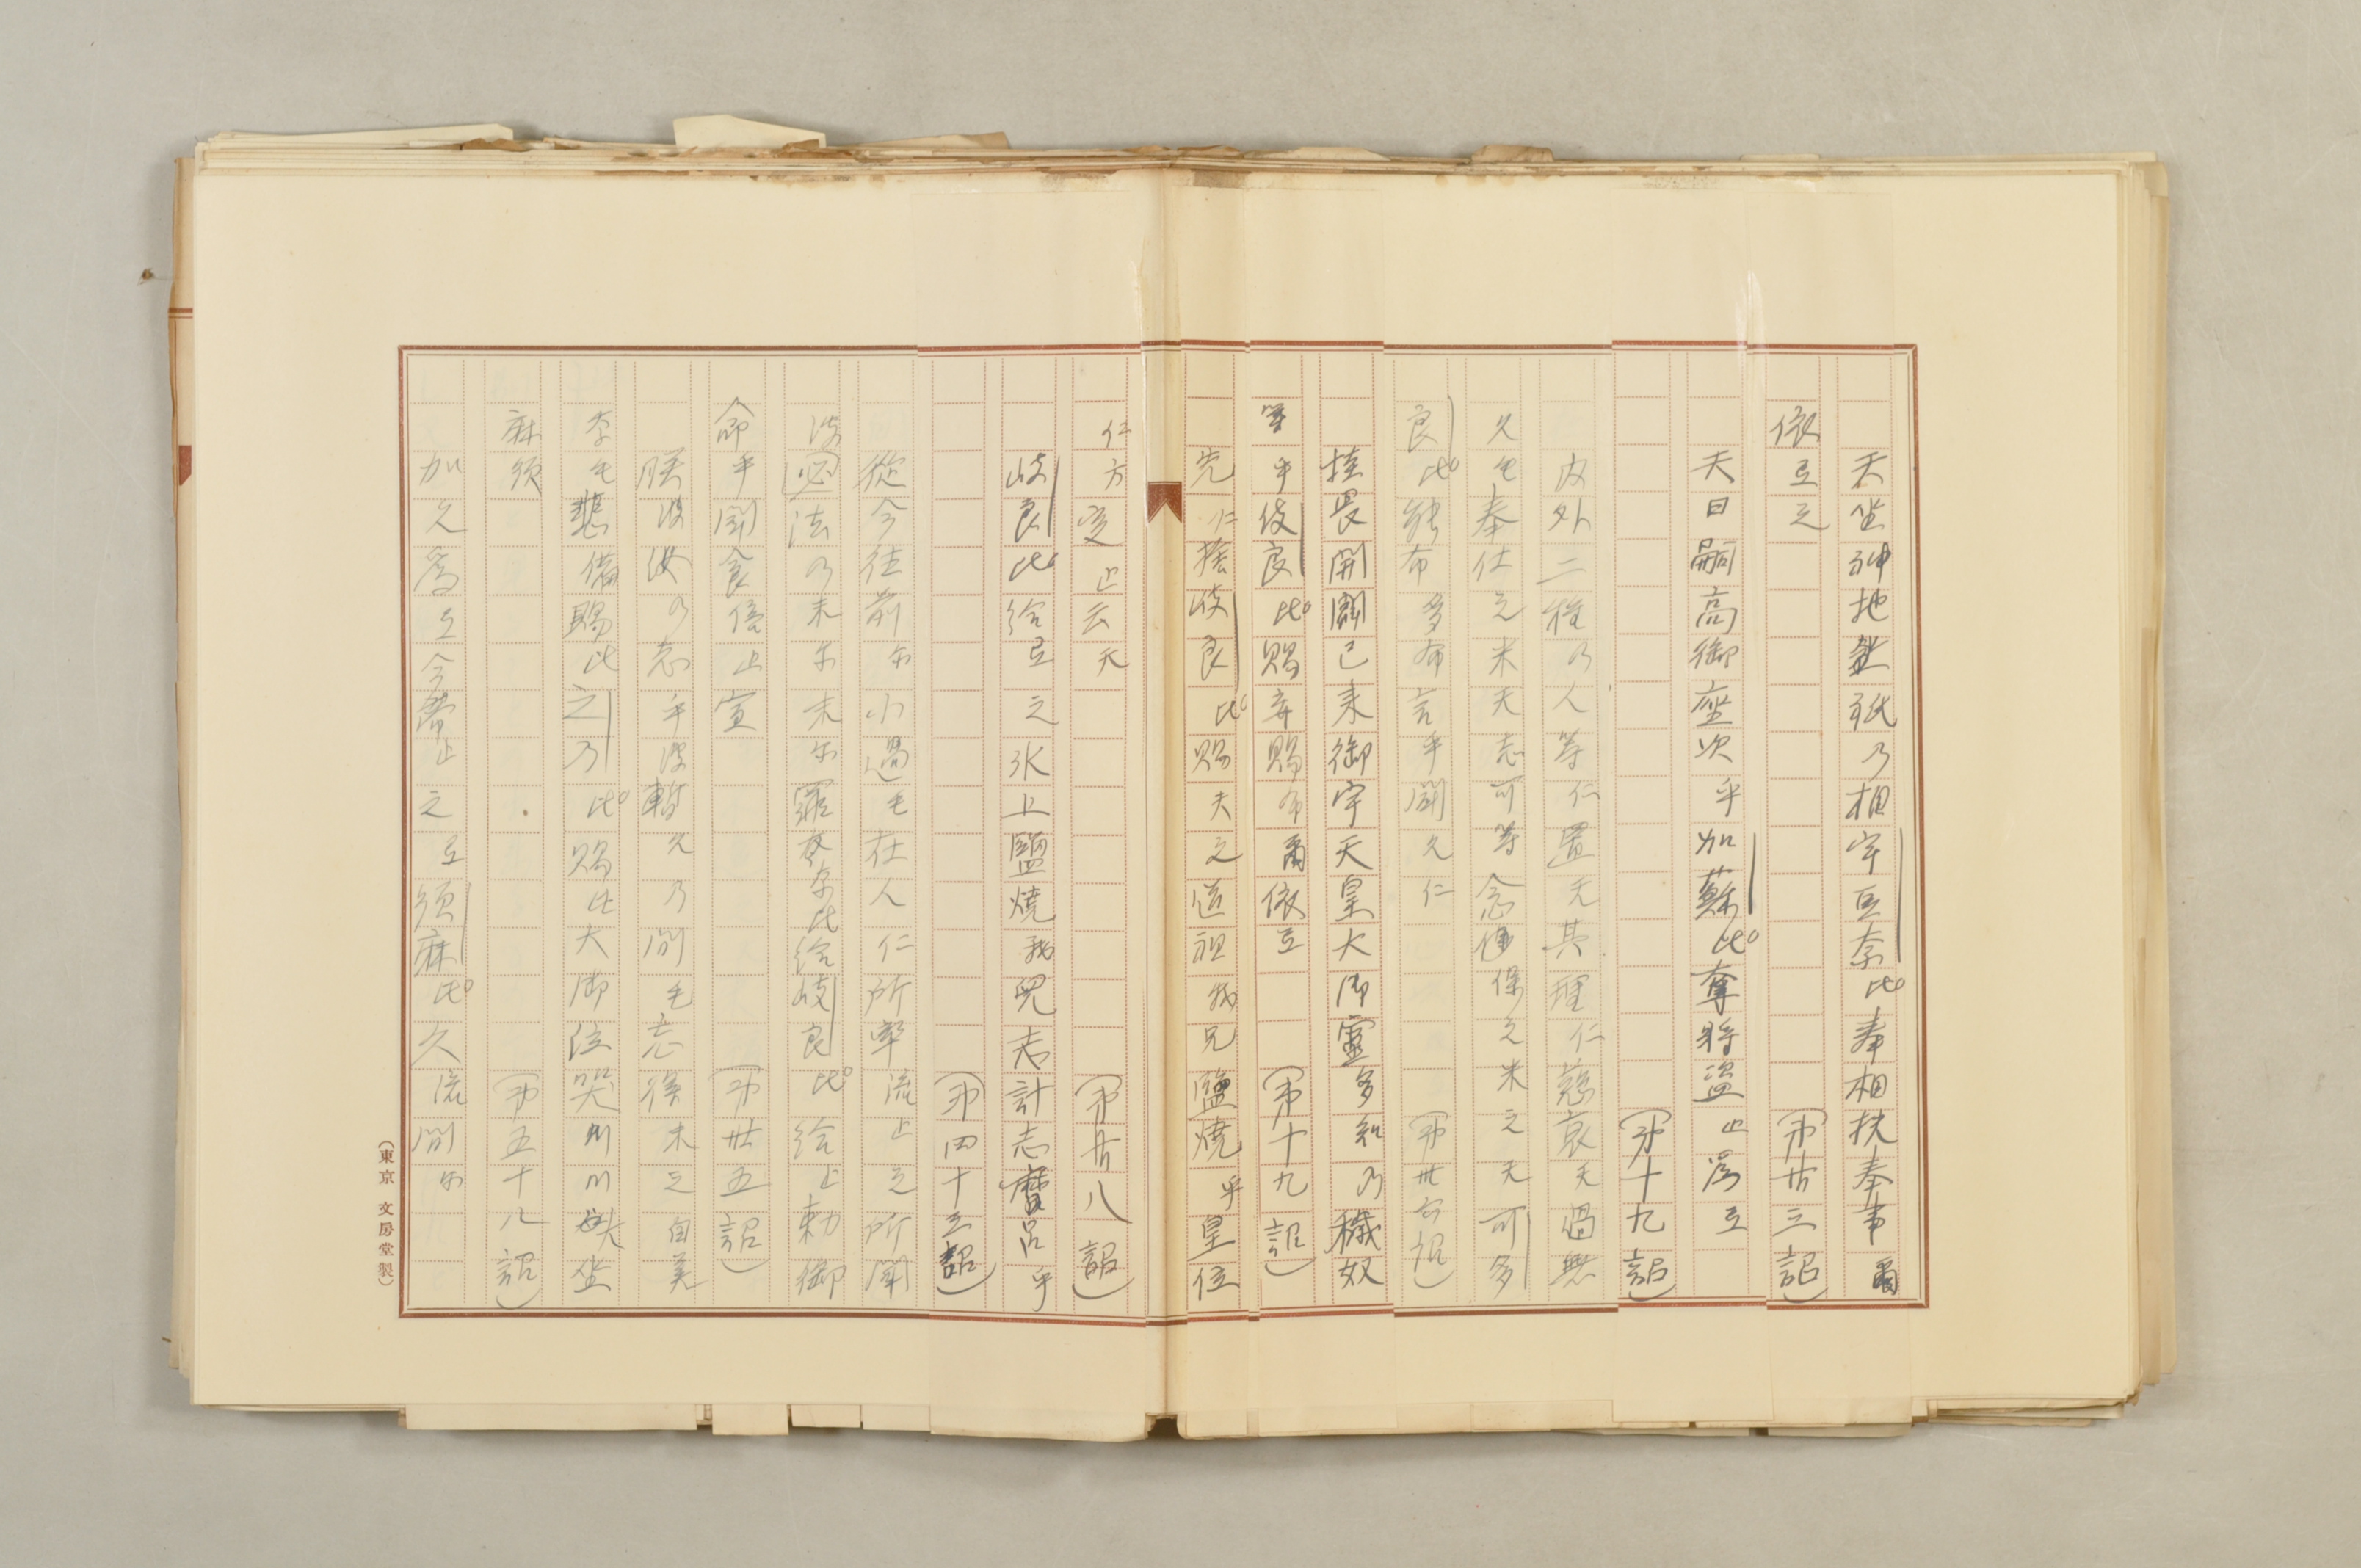 天坐神地坐祇乃相宇豆奈比奉相扶奉事爾
依弖之　（第廿三詔）
天日嗣高御座次乎加蘇比奪将盗止為弖
（第十九詔）
内外二種乃人等仁置天其理仁慈哀天過無
久毛奉仕之米天志可等念保之米之天可多
良比能布多布言乎聞久仁
挂畏開闢已来御宇天皇大御霊多知乃穢奴
等乎伎良比賜弃賜布爾依弖　（第十九詔）
先仁捨岐良比賜天之道祖我兄塩焼乎皇位
仁方定止云天　（第廿八詔）
岐良比給弖之氷上塩焼我児志計志麿呂乎
（第四十三詔）
従今往前尓小過毛在人仁所率流止之所聞
波必法乃末尓末尓罪奈比給岐良比給止勅御
命乎聞食倍止宣　（第卅五詔）
朕波汝乃志乎波暫久乃間毛忘得末之自美
奈毛悲備賜比之乃比賜比大御位哭川川坐
麻須　（第五十八詔）
加久為弖今帯止之弖須麻比久流間尓
（東京　文房堂製）